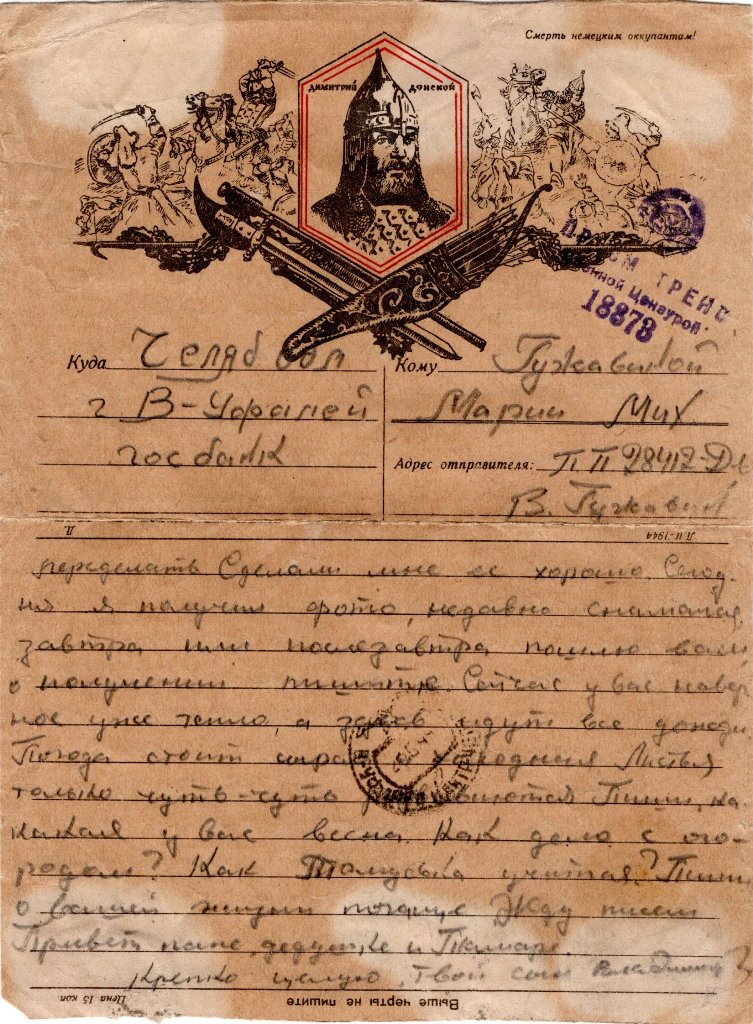 Смерть немецким оккупантам!
ДИМИТРИЙ ДОНСКОЙ
Военной Цензурой
18873
Куда Челяб обл
Кому Гужавиной
г В-Уфалей
Марии Мих
госбанк
Адрес отправителя: ПП 28417-Д
В. Гужавин
Л II-1944
переделать Сделали мне ее хорошо Сегод-
ня я получил фото, недавно снимался,
завтра или послезавтра пошлю вам
о получении пишите. Сейчас у вас навер
ное уже тепло, а здесь идут все дожди
Погода стоит сырая и холодная Листья
только чуть-чуть Пиши, ка-
какая у вас весна. Как дело с ого-
родом? Как Томуська учится? Пиши
о вашей жизни почаще Жду писем
Привет папе, дедушке и Тамаре.
Крепко целую, твой сын Владимир
Выше черты не пишите
Цена 15 коп.